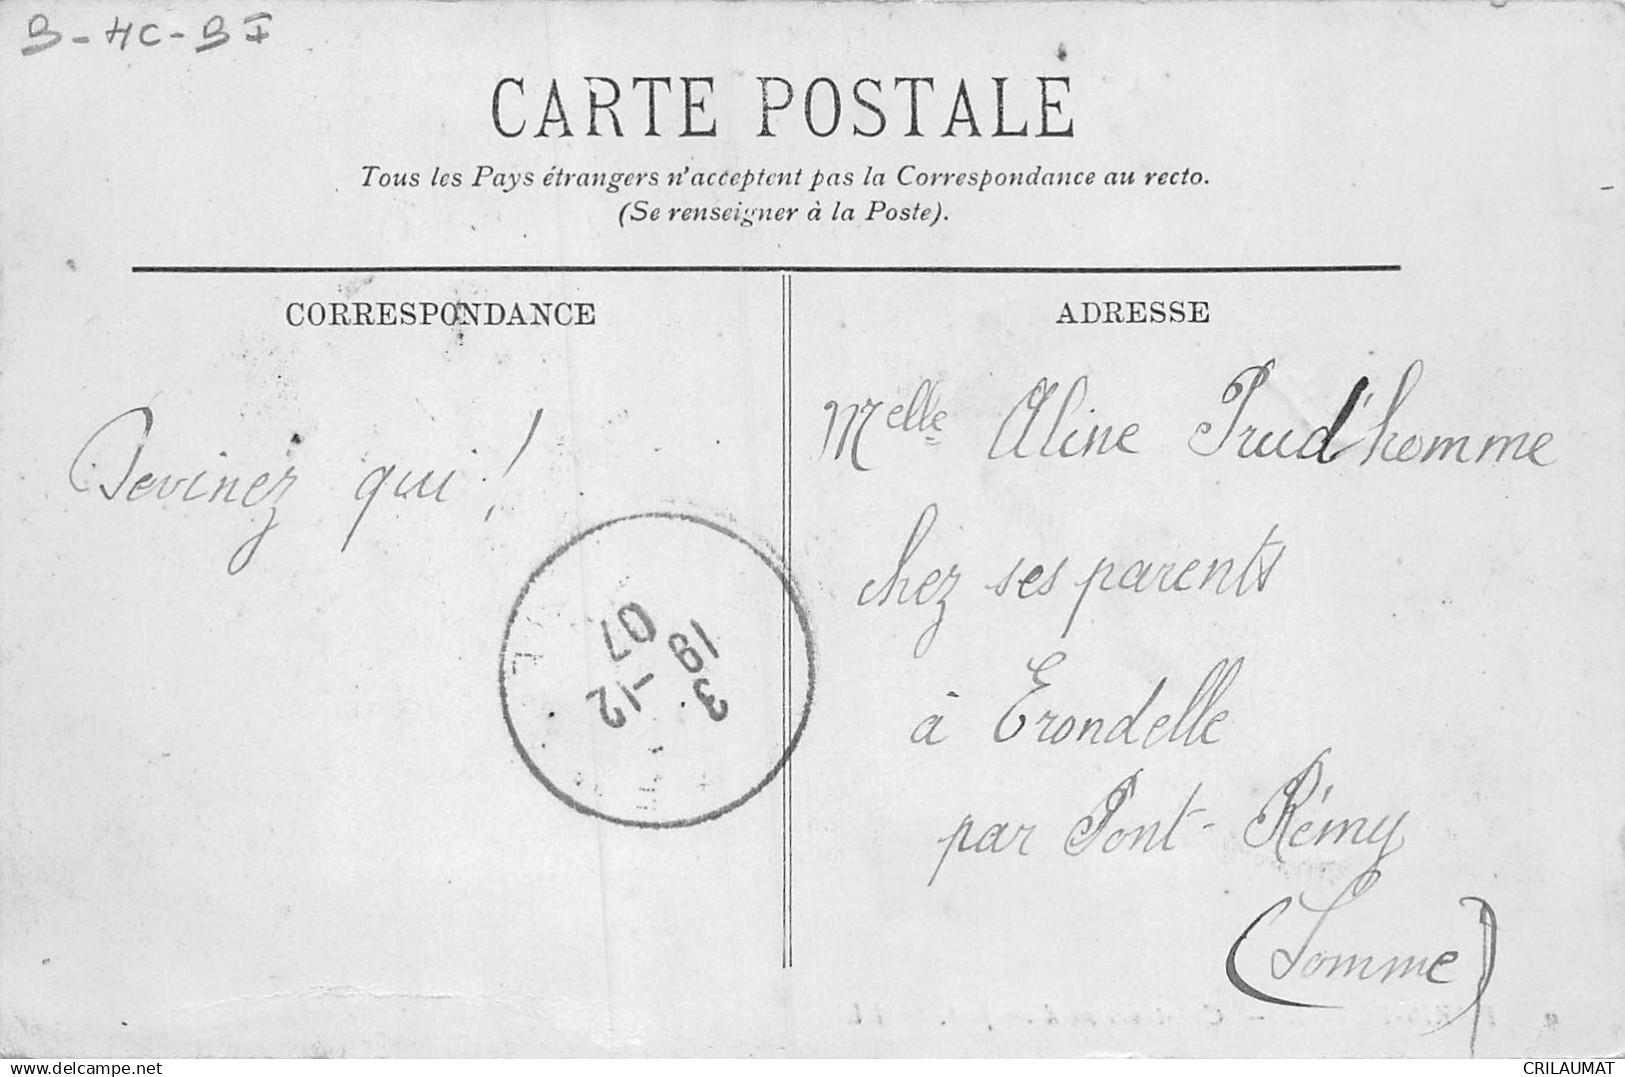 CARTE POSTALE
Tous les Pays étrangers n'acceptent pas la Correspondance au recto.
(Se renseigner à la Poste).
CORRESPONDANCE
Devinez qui !
3 -12
19
07
ADRESSE
Melle Aline Prud'homme
chez ses parents
à Erondelle
par Pont-Rémy
(Somme)
delcampe.net
CRILAUMAT